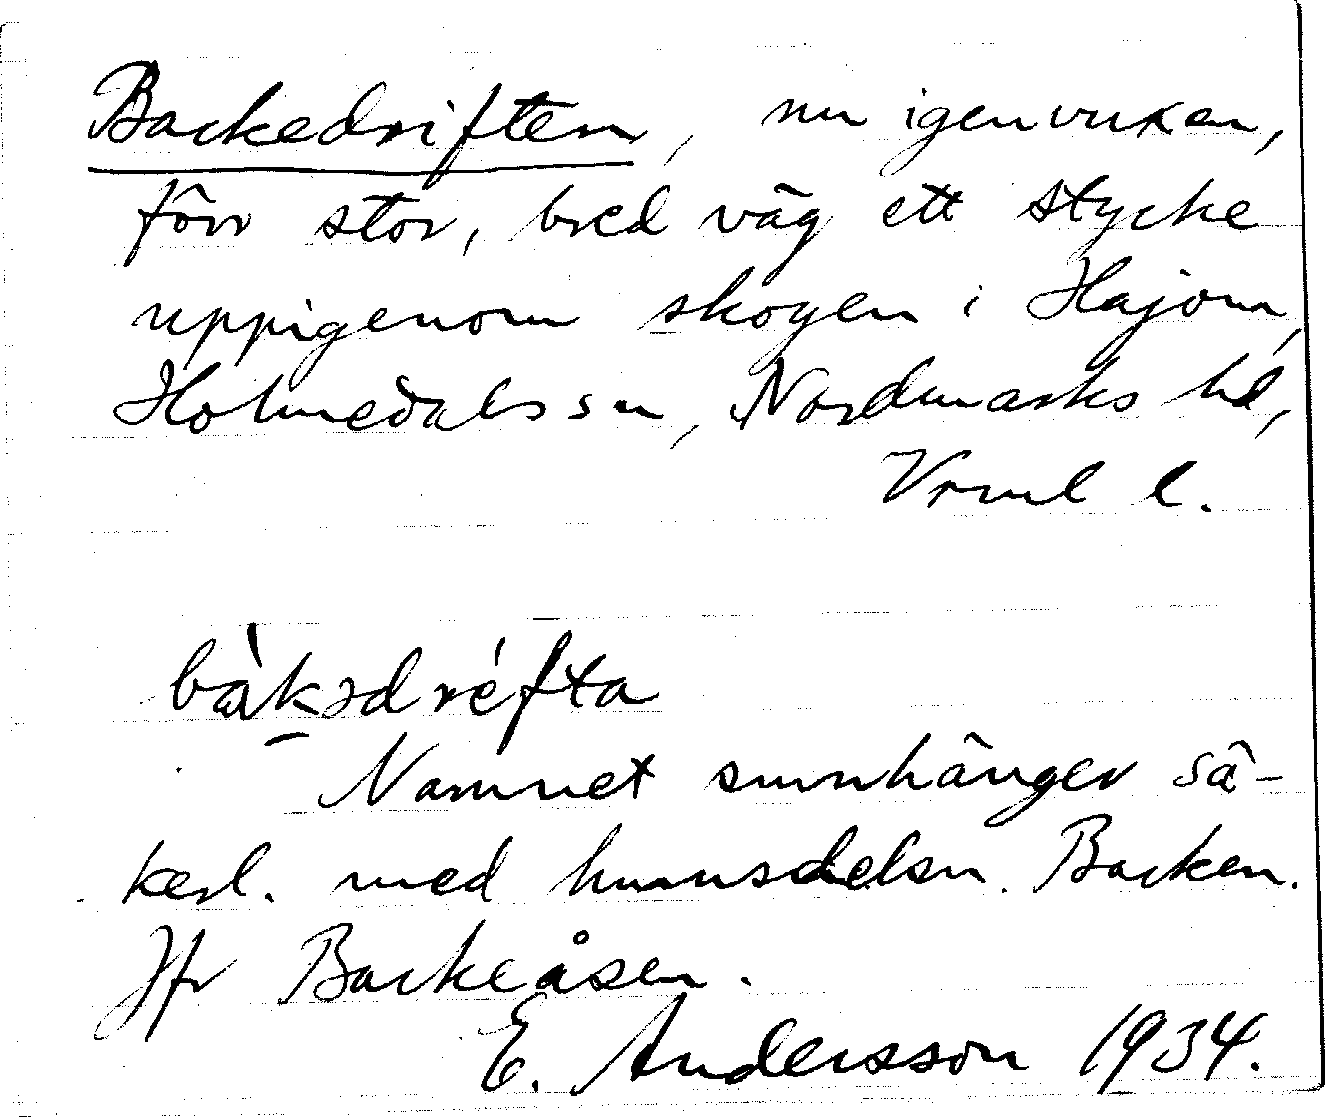 Backedriften, nu igenvuxen,
förr stor, bred väg ett stycke
uppigenom skogen i Hajom,
Holmedals sn, Nordmarks hd,
Vrml l.
bàkədréfta
Namnet smnhänger sä-
kerl. med hmnsdelsn. Backen.
Jfr Backeåsen.
E. Andersson 1934.